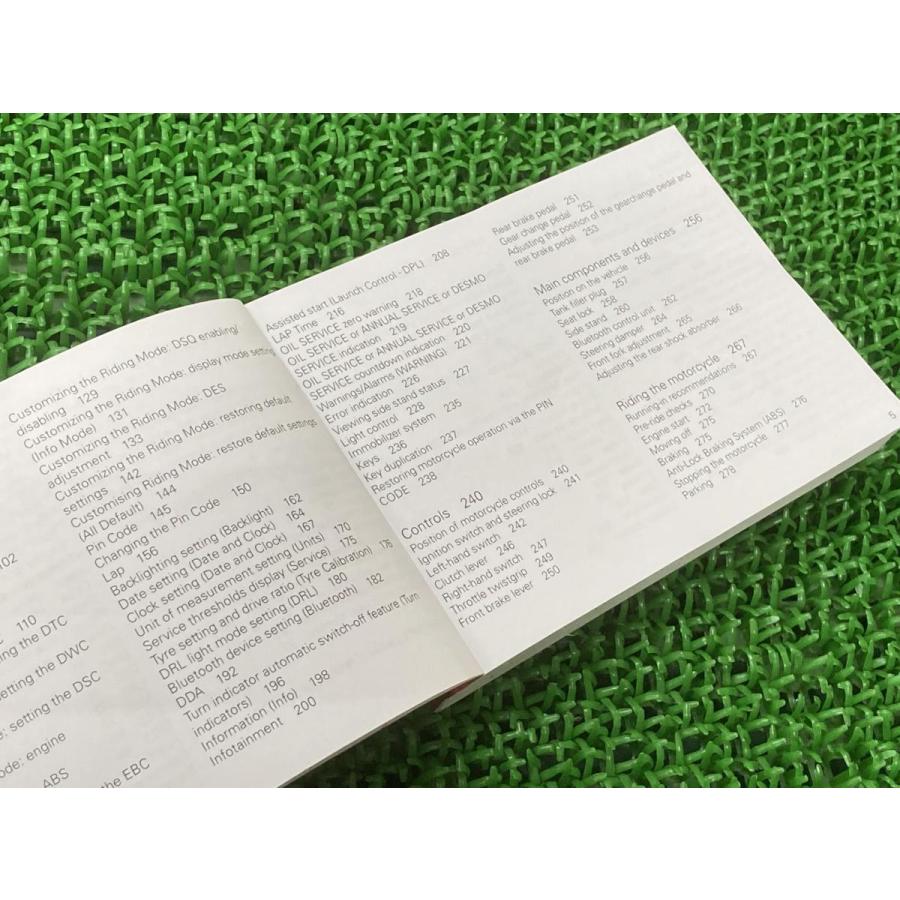 102
110
ing the DTC
etting the DWC
e: setting the DSC
ode: engine
ABS
the EBC
Customizing the Riding Mode: DSQ enabling/
disabling 129
Customizing the Riding Mode: display mode setting
(Info Mode) 131
Customizing the Riding Mode: DES
adjustment 133
Customizing the Riding Mode: restoring default
settings 142
Customising Riding Mode: restore default settings
(All Default) 144
Pin Code 145
Changing the Pin Code 150
Lap 156
Backlighting setting (Backlight) 162
Date setting (Date and Clock) 164
Clock setting (Date and Clock) 167
Unit of measurement setting (Units) 170
Service thresholds display (Service) 175
Tyre setting and drive ratio (Tyre Calibration) 176
DRL light mode setting (DRL) 180
Bluetooth device setting (Bluetooth) 182
DDA 192
Turn indicator automatic switch-off feature (Turn
indicators) 196
Information (Info) 198
Infotainment 200
Assisted start (Launch Control - DPL) 208
LAP Time 216
OIL SERVICE zero warning 218
OIL SERVICE or ANNUAL SERVICE or DESMO
SERVICE indication 219
OIL SERVICE or ANNUAL SERVICE or DESMO
SERVICE countdown indication 220
Warnings/Alarms (WARNING) 221
Error indication 226
Viewing side stand status 227
Light control 228
Immobilizer system 235
Keys 236
Key duplication 237
Restoring motorcycle operation via the PIN
CODE 238
Controls 240
Position of motorcycle controls 240
Ignition switch and steering lock 241
Left-hand switch 242
Clutch lever 246
Right-hand switch 247
Throttle twistgrip 249
Front brake lever 250
Rear brake pedal 251
Gear change pedal 252
Adjusting the position of the gearchange pedal and
rear brake pedal 253
Main components and devices 256
Position on the vehicle 256
Tank filler plug 257
Seat lock 258
Side stand 260
Bluetooth control unit 262
Steering damper 264
Front fork adjustment 265
Adjusting the rear shock absorber 266
Riding the motorcycle 267
Running-in recommendations 267
Pre-ride checks 270
Engine start 272
Moving off 275
Braking 275
Anti-Lock Braking System (ABS) 276
Stopping the motorcycle 277
Parking 278
5